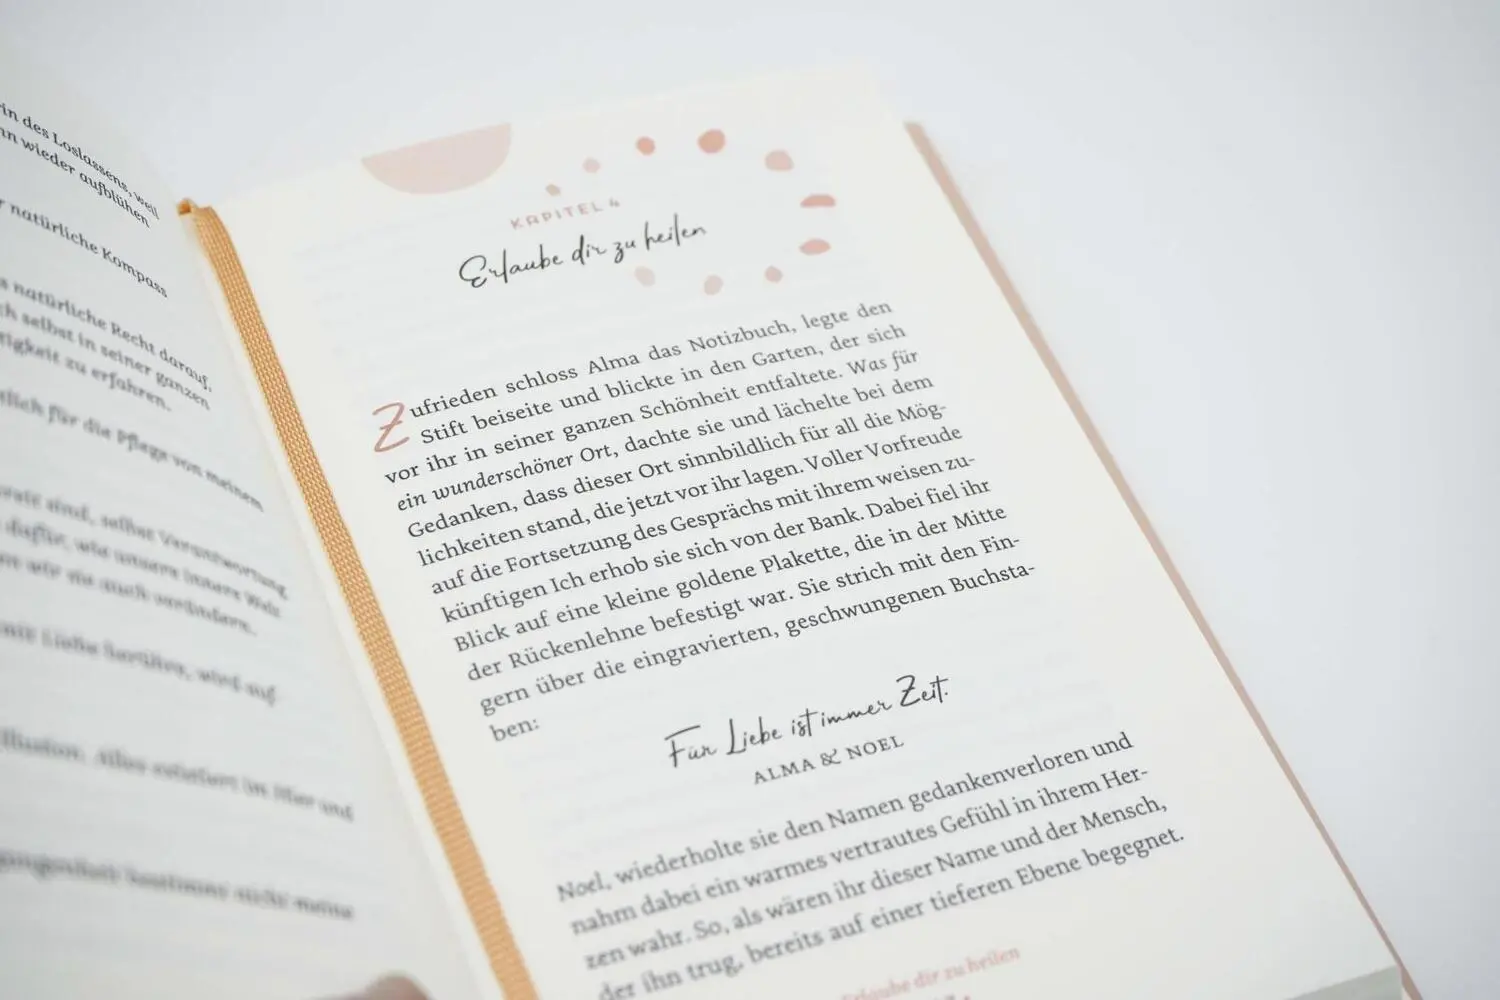 in des Loslassens, weil
nn wieder aufblühen
r natürliche Kompass
s natürliche Recht darauf,
ch selbst in seiner ganzen
tigkeit zu erfahren.
tlich für die Pflege von meinem
sind, selbst Verantwortung
dafür, wie unsere innere Welt
en wir sie auch verändern.
mit Liebe berühre, wird auf
Illusion. Alles existiert im Hier und
gangenheit bestimmt nicht meine
KAPITEL 4
Erlaube dir zu heilen
Zufrieden schloss Alma das Notizbuch, legte den
Stift beiseite und blickte in den Garten, der sich
vor ihr in seiner ganzen Schönheit entfaltete. Was für
ein wunderschöner Ort, dachte sie und lächelte bei dem
Gedanken, dass dieser Ort sinnbildlich für all die Mög-
lichkeiten stand, die jetzt vor ihr lagen. Voller Vorfreude
auf die Fortsetzung des Gesprächs mit ihrem weisen zu-
künftigen Ich erhob sie sich von der Bank. Dabei fiel ihr
Blick auf eine kleine goldene Plakette, die in der Mitte
der Rückenlehne befestigt war. Sie strich mit den Fin-
gern über die eingravierten, geschwungenen Buchsta-
ben:
Für Liebe ist immer Zeit.
ALMA & NOEL
Noel, wiederholte sie den Namen gedankenverloren und
nahm dabei ein warmes vertrautes Gefühl in ihrem Her-
zen wahr. So, als wären ihr dieser Name und der Mensch,
der ihn trug, bereits auf einer tieferen Ebene begegnet.
Erlaube dir zu heilen